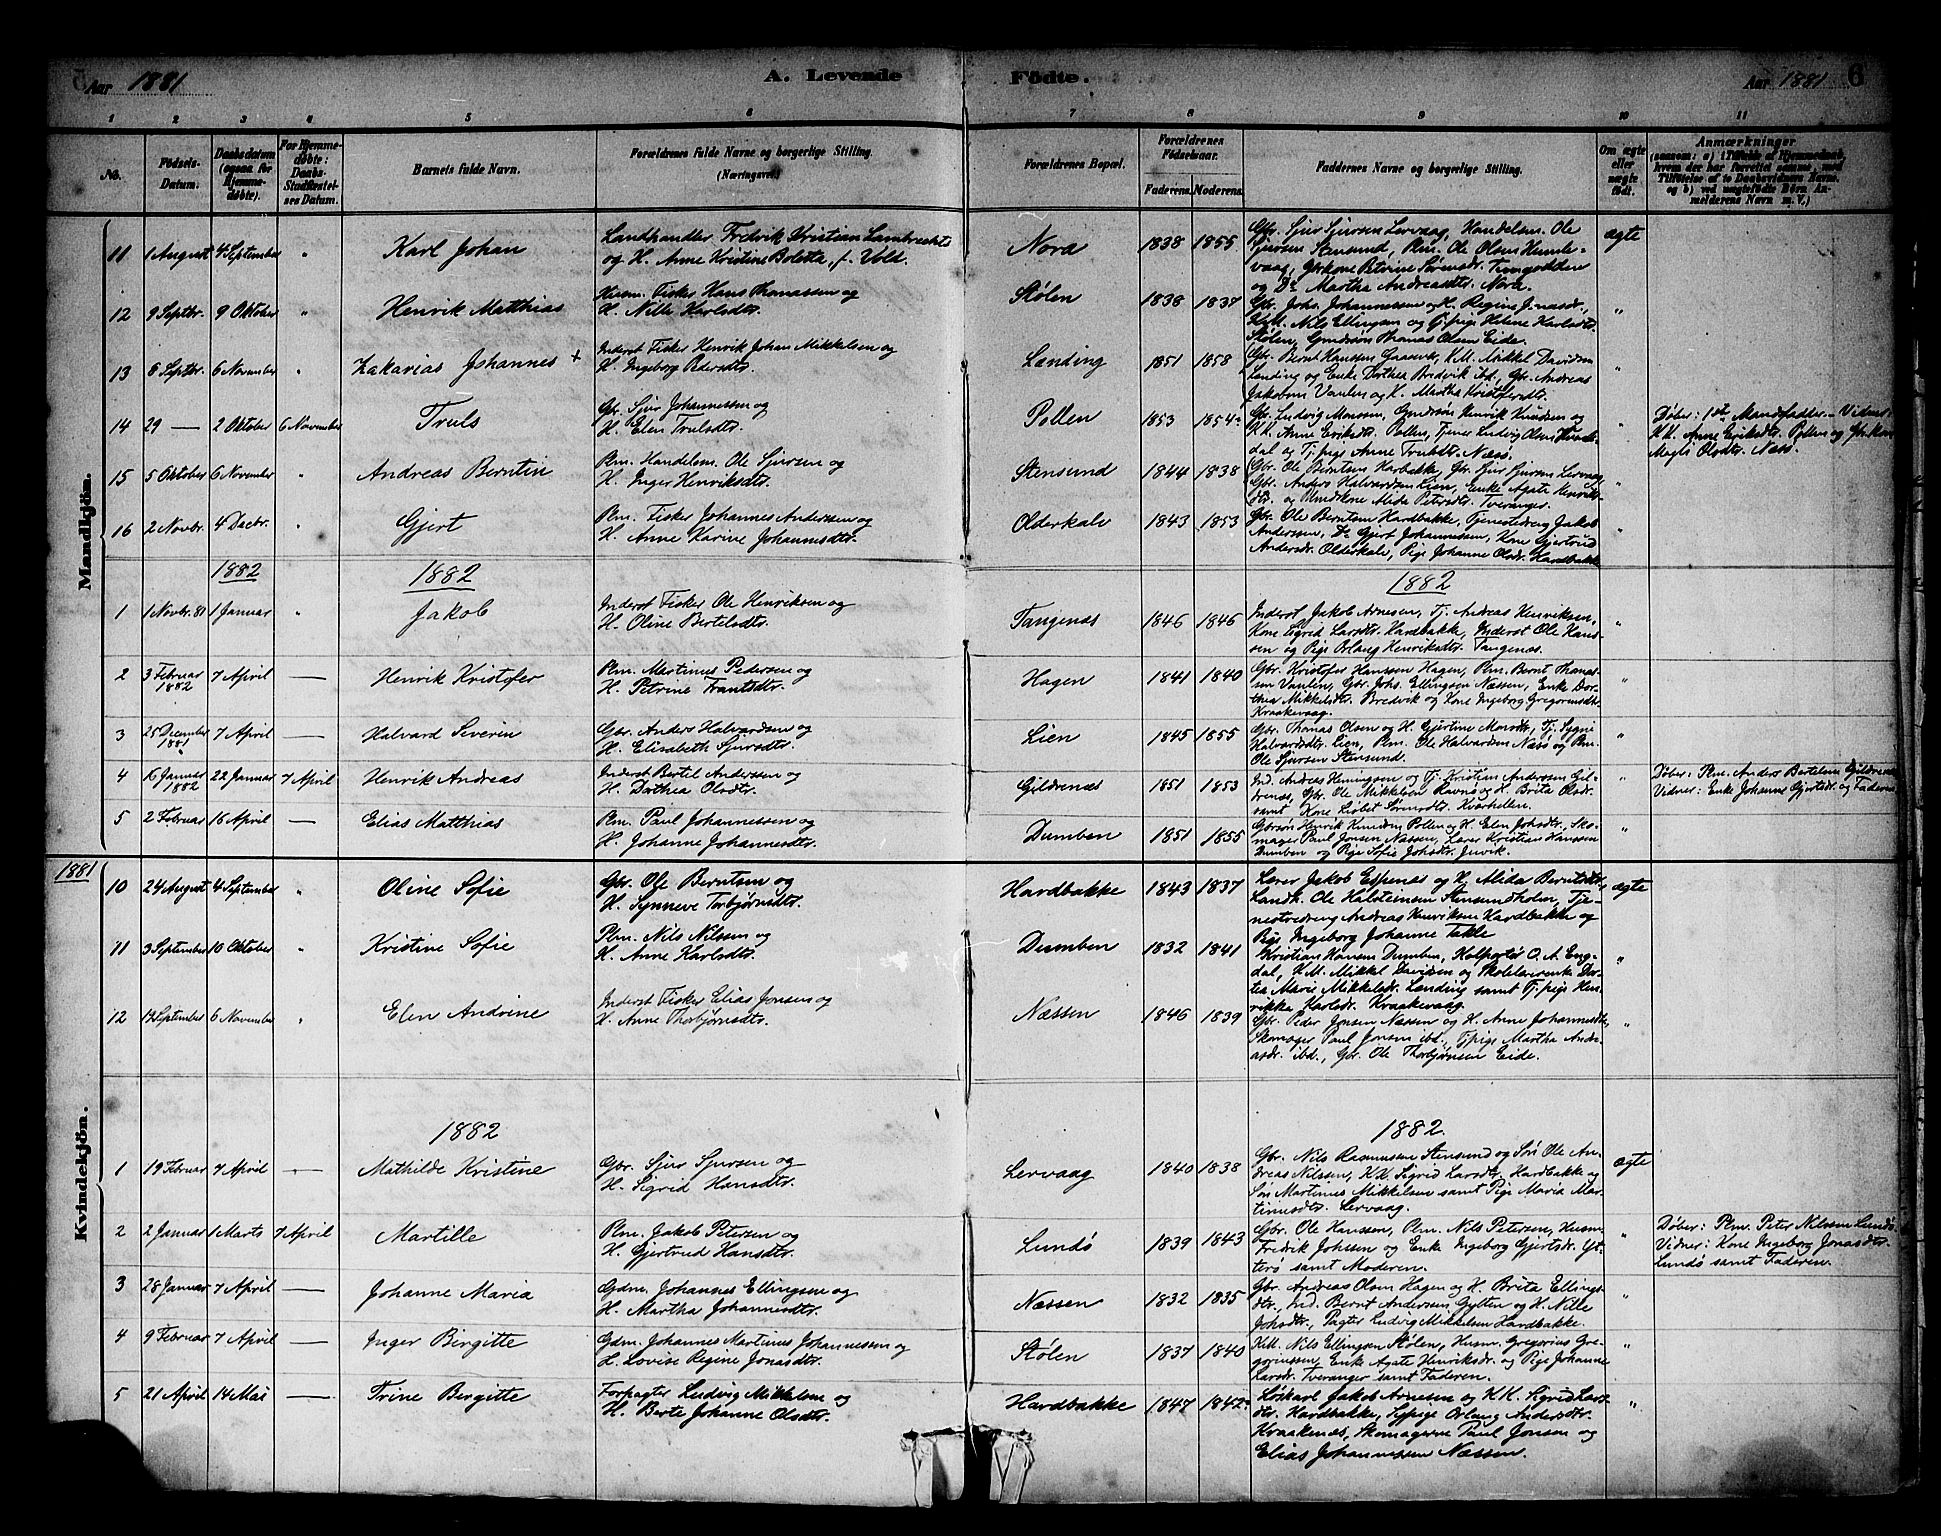 Aar 1881
A. Levende Födte.
Aar 1881 6
1 2 3 4 5 6 7 8 9 10 11
No.
Födsels-Datum.
Daabsdatum (ogsaa for Hjemmedöbte).
For Hjemmedöbte: Daabs-Stadfæstelses Datum.
Barnets fulde Navn.
Forældrenes fulde Navne og borgerlige Stilling.
(Næringsvei.)
Forældrenes Bopæl.
Forældrenes Födselsaar.
Faderens. Moderens.
Faddernes Navne og borgerlige Stilling.
Om ægte eller uægte födt.
Anmærkninger
(saasom: a) i Tilfælde af Hjemmedaab,
hvem der har forrettet samme, med
Tilföielse af to Daabsvidners Navne,
og b) ved uægtefödte Börn Anmelderens Navn m. V.)
Mandkjön.
11 1 August 4 September " Karl Johan
Landhandler Fredrik Kristian Lambrechts
og H. Anne Kristine Boletta, f. Vold.
Nora 1838 1855
Gbr. Sjur Sjursen Lervaag, Handelsm. Ole
Sjursen Stensund, Plm. Ole Olsen Humle-
vaag, Gbrkone Petrine Sørensdr.
og Do Martha Andreasdtr. Nora.
ægte
12 9 Septbr. 9 Oktober " Henrik Matthias
Husm. Fisker Hans Thomassen og
H. Nille Karlsdtr.
Stølen 1838 1837
Gbr. Johs. Johannessen og H. Regine Jonasdr.,
K.M. Nils Ellingsen og Tj.pige Helene Karlsdtr.
Stølen, Gmdsøn Thomas Olsen Eide.
"
13 6 Septbr. 6 November " Zakarias Johannes +
Inderst Fisker Henrik Johan Mikkelsen og
H. Ingeborg Pedersdtr.
Landing 1851 1858
Gbr. Bernt Hanssen Gaasvik, K.M. Mikkel Davidsen
Landing og Enke Dorthea Bredvik ibd., Gbr. Andreas
Jakobsen Vaulen og K. Martha Kristofersdtr.
"
14 29 — 2 Oktober 6 November Truls
Gbr. Sjur Johannessen og
H. Elen Trulsdtr.
Pollen 1853 1854
Gbr. Ludvig Monsen, Gmdsøn Henrik Knudsen og
K.K. Anne Eriksdtr. Pollen, Tjener Ludvig Olsen
dal og Tj.pige Anne Trulsdtr. Næss.
"
Døber: 1ste Mandsfadder. – Vidner:
K.K. Anne Eriksdtr. Pollen og Gbrkone
Magli Olsdtr. Næss.
15 5 Oktober 6 November " Andreas Berntin
Plm. Handelsm. Ole Sjursen og
H. Inger Henriksdtr.
Stensund 1844 1838
Gbr. Ole Berntsen Harbakke, Gbr. Sjur Sjursen Lervaag,
Gbr. Anders Halvardsen Lien, Enke Agate Henriks-
dtr. og Plmdkone Alida Petersdtr. Tveranger.
"
16 2 Novbr. 4 Decbr. " Gjert
Plm. Fisker Johannes Anderssen og
H. Anne Karine Johannesdtr.
Olderkalv 1843 1853
Gbr. Ole Berntsen Hardbakke, Tjenestedreng Jakob
Anderssen, Do Gjert Johannessen, Kone Gjertrud
Andersdr. Olderkalv, Pige Johanne Olsdr. Hardbakke
"
1882 1882 1882
1 1 Novbr. 81 1 Januar " Jakob
Inderst Fisker Ole Henriksen og
H. Oline Bertelsdtr.
Tangenæs 1846 1846
Inderst Jakob Arnesen, Tj. Andreas Henriksen,
Kone Sigrid Larsdtr. Hardbakke, Inderst Ole Hans-
sen og Pige Orlaug Henriksdtr. Tangenæs.
"
2 3 Februar 1882 7 April — Henrik Kristofer
Plm. Martinus Pedersen og
H. Petrine Frantsdtr.
Hagen 1841 1840
Gbr. Kristofer Hanssen Hagen, Plm. Bernt Thomas-
sen Vaulen, Gbr. Johs. Ellingsen Næssen, Enke Dor-
thea Mikkelsdtr. Bredvik og Kone Ingeborg Gregoriusdtr.
Kraakevaag.
"
3 25 December 1881 7 April — Halvard Severin
Gbr. Anders Halvardsen og
H. Elisabeth Sjursdtr.
Lien 1845 1855
Gbr. Thomas Olsen og H. Gjertine Monsdtr., Tj. Sygni
Halvardsdtr. Lien, Plm. Ole Halvardsen Næss og Plm.
Ole Sjursen Stensund.
"
4 16 Januar 1882 22 Januar 7 April Henrik Andreas
Inderst Bertil Anderssen og
H. Dorthea Olsdtr.
Gildrenæs 1851 1853
Ind. Andreas Henningsen og Tj. Kristian Anderssen Gil-
drenæs, Gbr. Ole Mikkelsen Ravnø og H. Brita Olsdr.
samt Kone Lisbet Sørensdtr. Kvarhellen.
"
Døber: Plm. Anders Bertelsen Gildrenæs
Vidner: Enke Johanne Gjertsdr. og Faderen
5 2 Februar 16 April — Elias Matthias
Plm. Paul Johannessen og
H. Johanne Johannesdtr.
Dumben 1851 1855
Gbrsøn Henrik Knudsen Pollen og H. Elen Johsdtr., Sko-
mager Paul Jonsen Næssen, Lærer Kristian Hanssen
Dumben og Pige Sofie Johsdtr.
"
1881
Kvindekjön.
10 24 August 4 September " Oline Sofie
Gbr. Ole Berntsen og
H. Synneve Torbjørnsdtr.
Hardbakke 1843 1837
Lærer Jakob Espenæs og H. Alida Berntsdtr.,
Landh. Ole Halsteinsen Stensundholm, Tje-
nestedreng Andreas Henriksen Hardbakke og
Pige Ingeborg Johanne Takle
ægte
11 3 September 10 Oktober " Kristine Sofie
Plm. Nils Nilssen og
H. Anne Karlsdtr.
Dumben 1832 1841
Kristian Hansen Dumben, Kolportør O. A. Eng-
dal, K.M. Mikkel Davidsen og Skolelærerenke Dor-
tea Marie Mikkelsdr. Landing samt Tj.pige Hen-
rikke Karlsdr. Kraakevaag.
"
12 14 September 6 November " Elen Andrine
Inderst Fisker Elias Jonsen og
H. Anne Thorbjørnsdtr.
Næssen 1846 1839
Gbr. Peder Jonsen Næssen og H. Anne Johannesdtr,
Skomager Paul Jonsen ibd., Tj.pige Martha Andre-
asdr. ibd., Gbr. Ole Thorbjørnsen Eide.
"
1882 1882.
1 19 Februar 7 April — Mathilde Kristine
Gbr. Sjur Sjursen og
H. Sigrid Hansdtr.
Lervaag 1840 1838
Gbr. Nils Rasmussen Stensund og Søn Ole An-
dreas Nilssen, K.K. Sigrid Larsdtr. Hardbakke og
Søn Martinus Mikkelsen samt Pige Maria Mar-
tinusdtr. Lervaag.
ægte
2 2 Januar 1 Marts 7 April Martille
Plm. Jakob Petersen og
H. Gjertrud Hansdtr.
Lundø 1839 1843
Gbr. Ole Hanssen, Plm. Nils Petersen, Husm.
Fredrik Johssen og Enke Ingeborg Gjertsdr. Yt-
terø samt Moderen.
"
Døber: Plm. Peter Nilssen Lundø.
Vidner: Kone Ingeborg Jonasdtr.
Lundø samt Faderen.
3 28 Januar 7 April — Johanne Maria
Gdm. Johannes Ellingsen og
H. Martha Johannesdtr.
Næssen 1832 1835
Gbr. Andreas Olsen Hagen og H. Brita Ellings-
dtr., Ind. Bernt Andersen Gylten og H. Nille
Johsdtr., Pagter Ludvig Mikkelsen Hardbakke.
"
4 9 Februar 7 April — Inger Birgitte
Gdm. Johannes Martinus Johannessen og
H. Lovise Regine Jonasdtr.
Stølen 1837 1840
K.M. Nils Ellingsen Stølen, Husm. Gregorius Gre-
goriussen, Enke Agate Henriksdr. og Pige Johanne
Larsdr. Tveranger samt Faderen.
"
5 21 April 14 Mai — Trine Birgitte
Forpagter Ludvig Mikkelsen og
H. Berte Johanne Olsdtr.
Hardbakke 1847 1842
Løskarl Jakob Arnesen og K.K. Sigrid Lars-
dtr. Hardbakke, Tj.pige Orlaug Andersdtr.
Kraakenæs, Skomagerne Paul Jonsen og
Elias Johannessen Næssen.
"